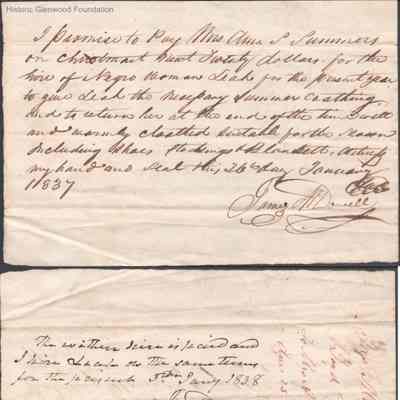 Historic Glenwood Foundation
I promise to Pay Mrs Ann S Summers
on Christmast next Twenty Dollars. for the
hire of Negro Woman Leah for the present year
to give Leah the necessary Summer Clothing
and to return her at the end of the time well
and warmly cloathed suitable for the season
Including Shoes Stockings & Blanket, Witness
my hand and seal this 26th day January
1837
James McDowell
The within hire is paid and
I hire Leah on the same terms
for the present 3rd Jany 1838